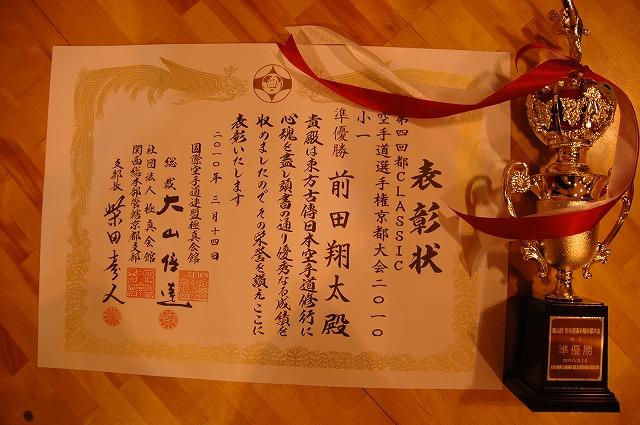 表彰状
第四回都CLASSIC
空手道選手権京都大会二〇一〇
小一
準優勝 前田翔太殿
貴殿は東方古傳日本空手道修行に
心魂を盡し頭書の通り優秀なる成績を
収めましたのでその栄誉を讃えここに
表彰いたします
二〇一〇年三月十四日
国際空手道連盟極真会館
総裁 大山倍達
社団法人極真会館
関西総本部管轄京都支部
支部長
小1
準優勝
2010.3.14